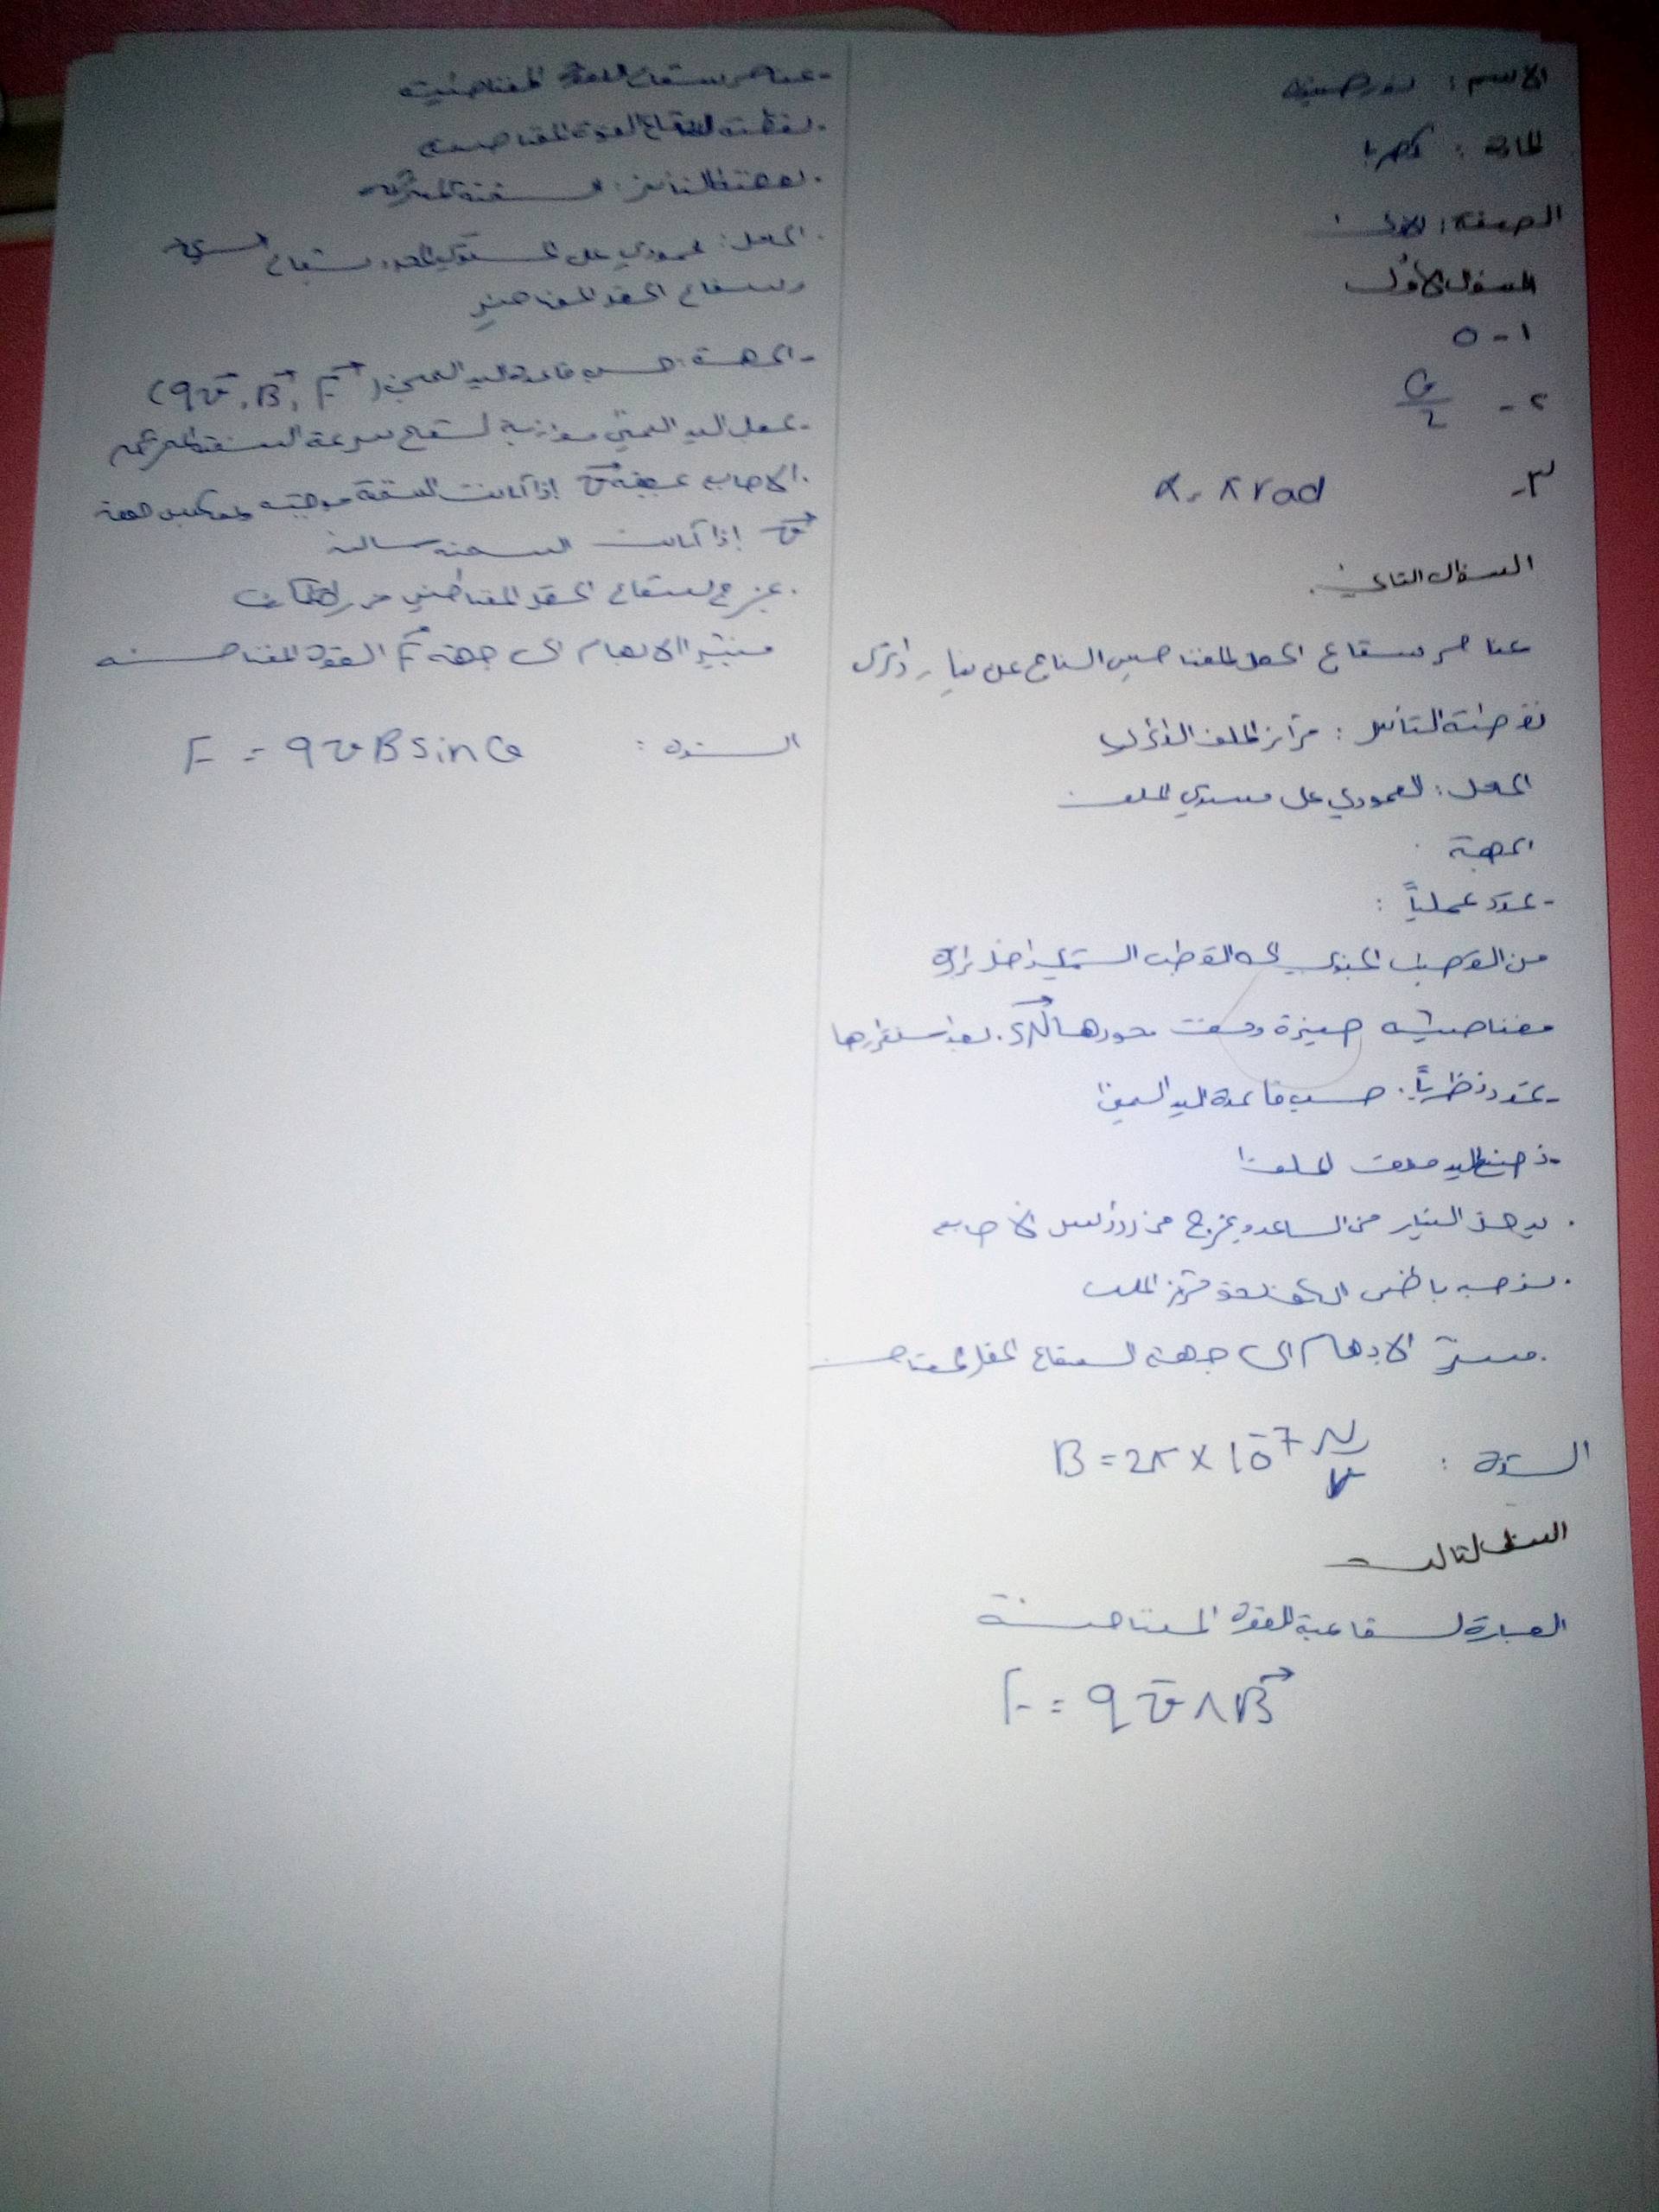 الاسم : نور حسينة
المادة : كهربا
الصفحة : الأولى
السؤال الأول
١ - ٥
٢ - G/2
٣ - α = π rad
السؤال الثاني :
عناصر شعاع الحقل المغناطيسي الناتج عن تيار دائري
نقطة التأثير : مركز الملف الدائري
الحامل : العمودي على مستوي الملف
الجهة :
- تحدد عملياً :
من القطب الجنوبي إلى القطب الشمالي داخل إبرة
مغناطيسية صغيرة وضعت محورها بعد استقرارها
- تحدد نظرياً : حسب قاعدة اليد اليمنى
- نضع اليد فوق الملف
. يدخل التيار من الساعد ويخرج من رؤوس الأصابع
. نوجه باطن الكف نحو مركز الملف
. يشير الابهام الى جهة شعاع الحقل المغناطيسي
الشدة : B = 2π × 10⁻⁷ N/r
السؤال الثالث
العبارة الشعاعية للقوة المغناطيسية
F = q v̄ ∧ B⃗
- عناصر شعاع القوة المغناطيسية
. نقطة التأثير : الشحنة المتحركة
. الحامل : عمودي على المستوي المحدد بشعاع السرعة
وشعاع الحقل المغناطيسي
- الجهة : حسب قاعدة اليد اليمنى (qv⃗, B⃗, F⃗)
- نجعل اليد اليمنى موازية لشعاع سرعة الشحنة المتحركة
. الاصابع بجهة v⃗ اذا كانت الشحنة موجبة وبعكس جهة
v⃗ إذا كانت الشحنة سالبة
. يخرج شعاع الحقل المغناطيسي من راحة الكف
يشير الابهام الى جهة F⃗ القوة المغناطيسية
الشدة : F = q v B sin G